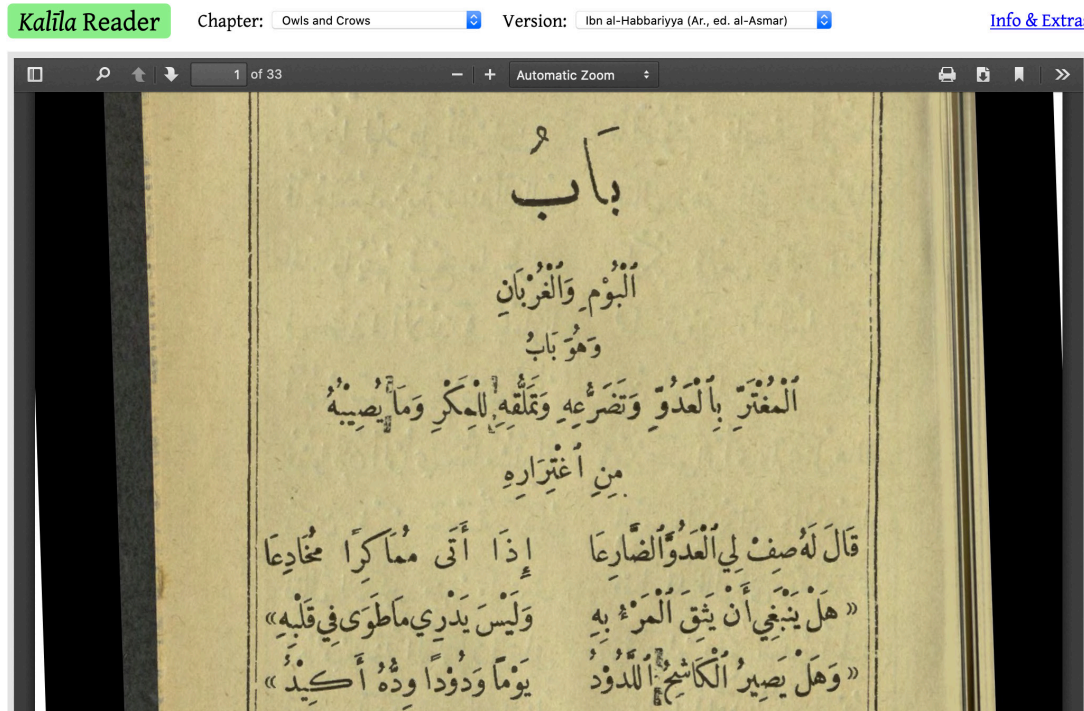 Kalīla Reader Chapter: Owls and Crows Version: Ibn al-Habbariyya (Ar., ed. al-Asmar) Info & Extra
1 of 33 Automatic Zoom
بَابُ
اَلْبُوْمِ وَٱلْغُرْبَانِ
وَهُوَ بَابُ
اَلْمُغْتَرِّ بِٱلْعَدُوِّ وَتَضَرُّعِهِ وَتَمَلُّقِهِ لِلْمَكْرِ وَمَا يُصِيْبُهُ
مِنِ ٱغْتِرَارِهِ
قَالَ لَهُ صِفْ لِي ٱلْعَدُوَّ ٱلضَّارِعَا إِذَا أَتَى مُمَاكِرًا مُخَادِعَا
« هَلْ يَنْبَغِي أَنْ يَثِقَ ٱلْمَرْءُ بِهِ وَلَيْسَ يَدْرِي مَا طَوَى فِي قَلْبِهِ»
« وَهَلْ يَصِيرُ ٱلْكَاشِحُ ٱللَّدُوْدُ يَوْمًا وَدُوْدًا وِدُّهُ أَكِيْدُ »